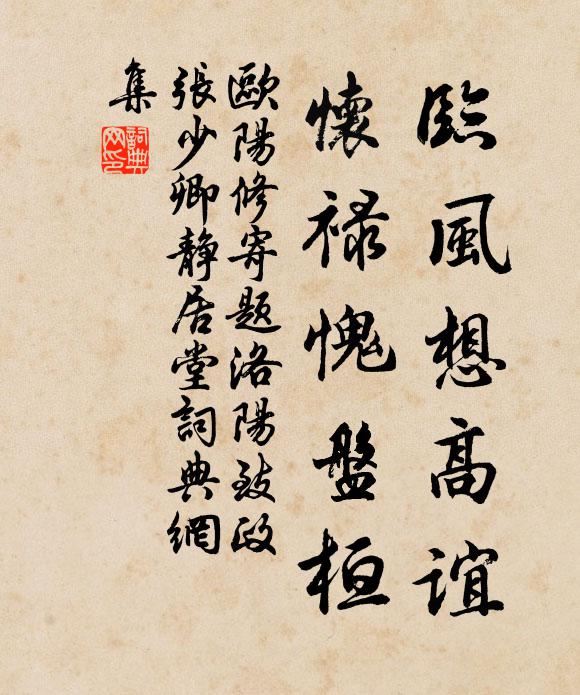 臨風想高誼
懷祿愧盤桓
歐陽修寄題洛陽致政
張少卿靜居堂詞典網
集
詞典
网印